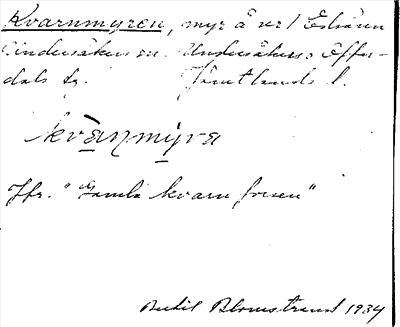 Kvarnmyren, myr å ver/Edsåsen
Undersåkers sn. Undersåkers o. Offer-
dals tg. Jämtlands l.
kvànmýra
Jfr. "Gamla kvarn forsen"
Bertil Blomstrand 1934